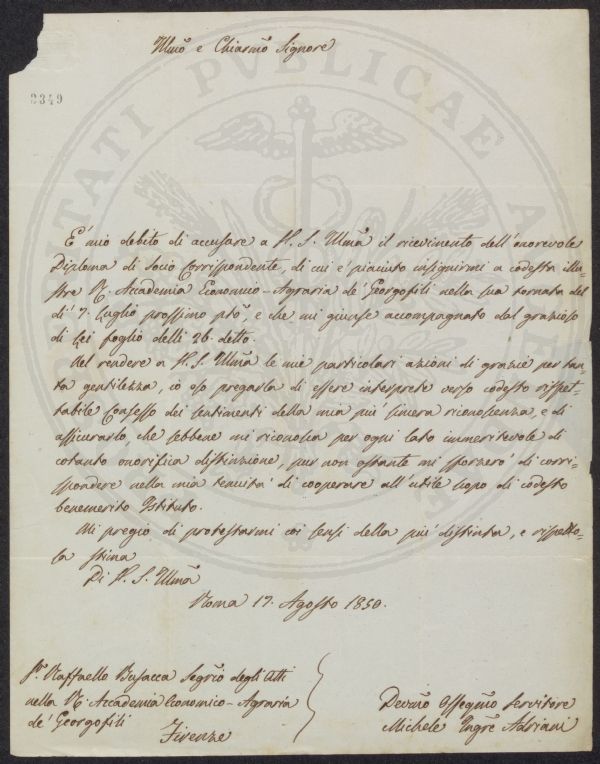 Illmo e Chiarmo Signore
2349
È mio debito di accusare a V. S. Illma il ricevimento dell'onorevole
Diploma di Socio Corrispondente, di cui è piaciuto insignirmi a codesta illu-
stre R. Accademia Economico-Agraria de' Georgofili nella sua tornata del
dì 7. Luglio prossimo pto, e che mi giunse accompagnato dal grazioso
di Lei foglio delli 26. detto.
Nel rendere a V. S. Illma le mie particolari azioni di grazie per tan-
ta gentilezza, io oso pregarla di essere interprete verso codesto rispet-
tabile Consesso dei sentimenti della mia più sincera riconoscenza, e di
assicurarlo, che sebbene mi riconosca per ogni lato immeritevole di
cotanto onorifica distinzione, pur non ostante mi sforzerò di corri-
spondere nella mia tenuità di cooperare all'utile scopo di codesto
benemerito Istituto.
Mi pregio di protestarmi coi sensi della più distinta, e rispetto-
sa stima
Di V. S. Illma
Roma 17. Agosto 1850.
Sr. Raffaello Busacca Segrio degli Atti
nella R. Accademia Economico-Agraria
de' Georgofili
Firenze
Devmo Ossequmo Servitore
Michele Ingre Adriani
PUBLICAE